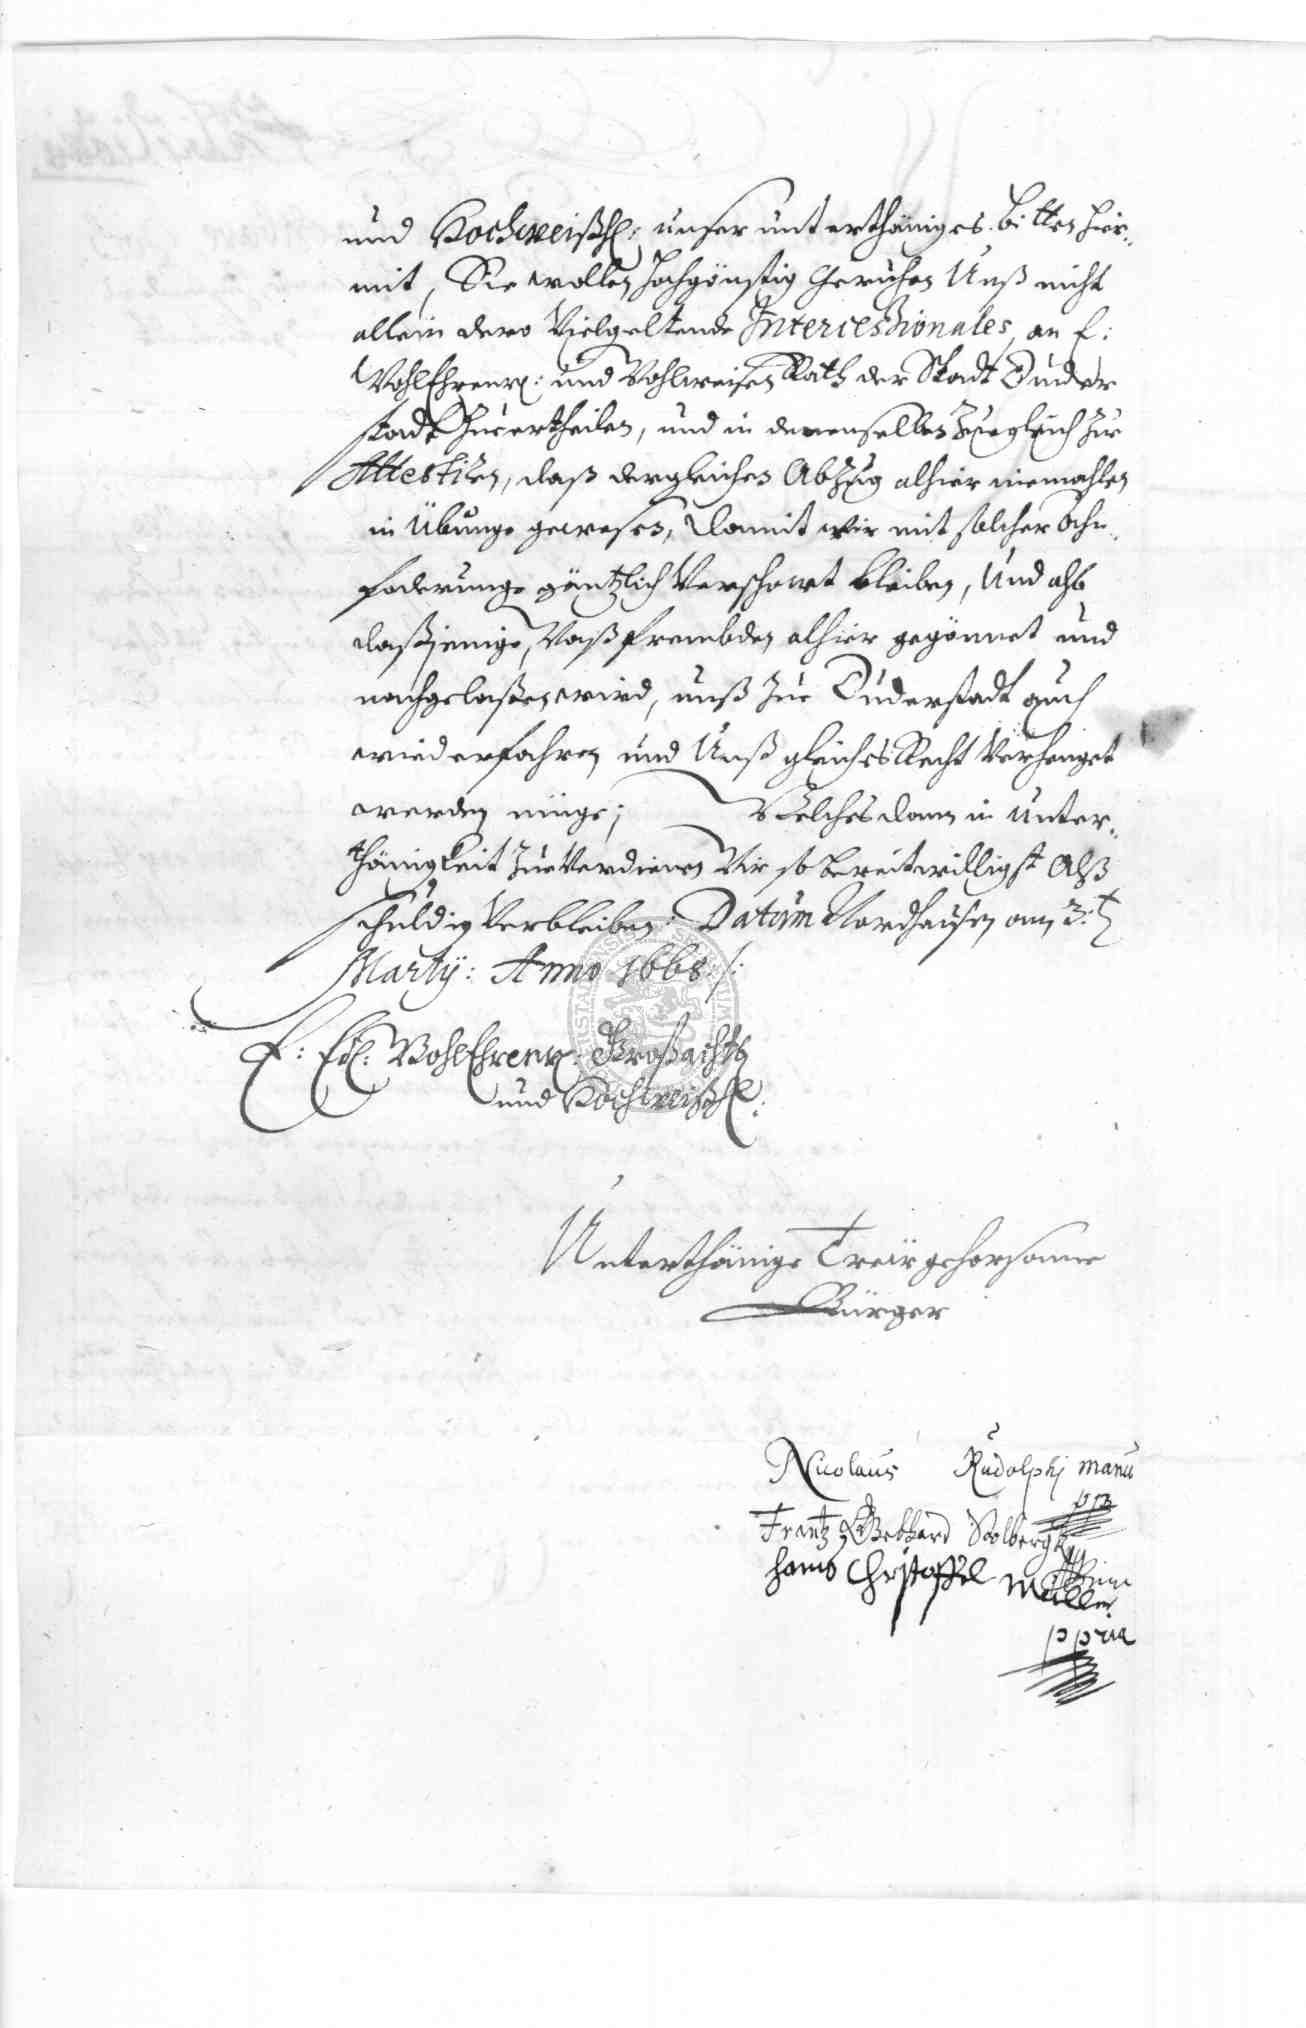 und Hochweißhl: unser unterthäniges bitten hier-
mit, Sie wollen hochgönstig geruhen Unß nicht
allein dero Vielgeltende Intercessionales, an E:
WohlEhrenv: und Wohlweisen Rath der Stadt Duder
stadt Zuertheilen, und in denenselben Zugleich Zue
Attestiren, daß dergleichen Abzug alhier niemahlen
in Übunge gewesen, damit wir mit solcher
foderunge gäntzlich Verschont bleiben, Und alß
dasjenige, Waß frembden alhier gegönnet und
nachgelaßen wird, unß Zue Duderstadt auch
wiederfahren und Unß gleiches Recht Verhenget
werden müge; Welches dann in unter-
thänigkeit Zue Verdienen Wir so bereitwilligst Alß
schuldig Verbleiben. Datum Nordhausen am 3.t
Martÿ: Anno 1668 /:
E: Edl: WohlEhrenv: Großachtb
und Hochweißhl:
Unterthänige Treügehorsame
Bürger
Nicolaus Rudolphj manu
ppa
Frantz Gebhard Stolbergk
hanß Christoffel Müller
ppria